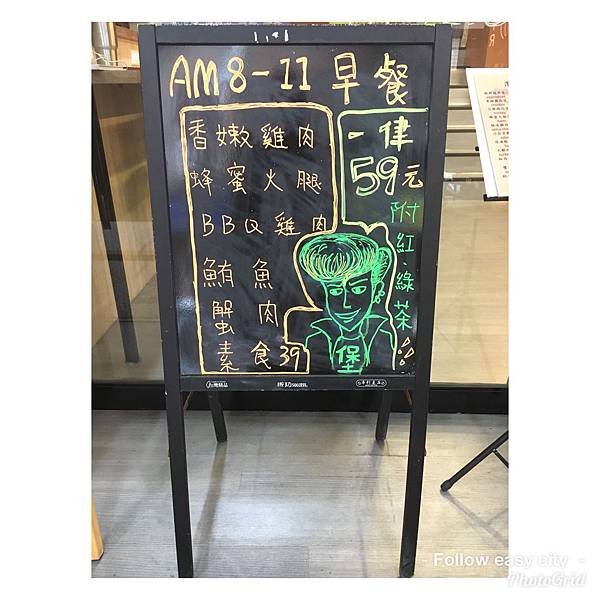 AM 8-11 早餐
香嫩雞肉
蜂蜜火腿
BBQ雞肉
鮪魚
蟹肉
素食39
一律
59元
附紅綠茶
堡
- Follow easy city -
PhotoGrid